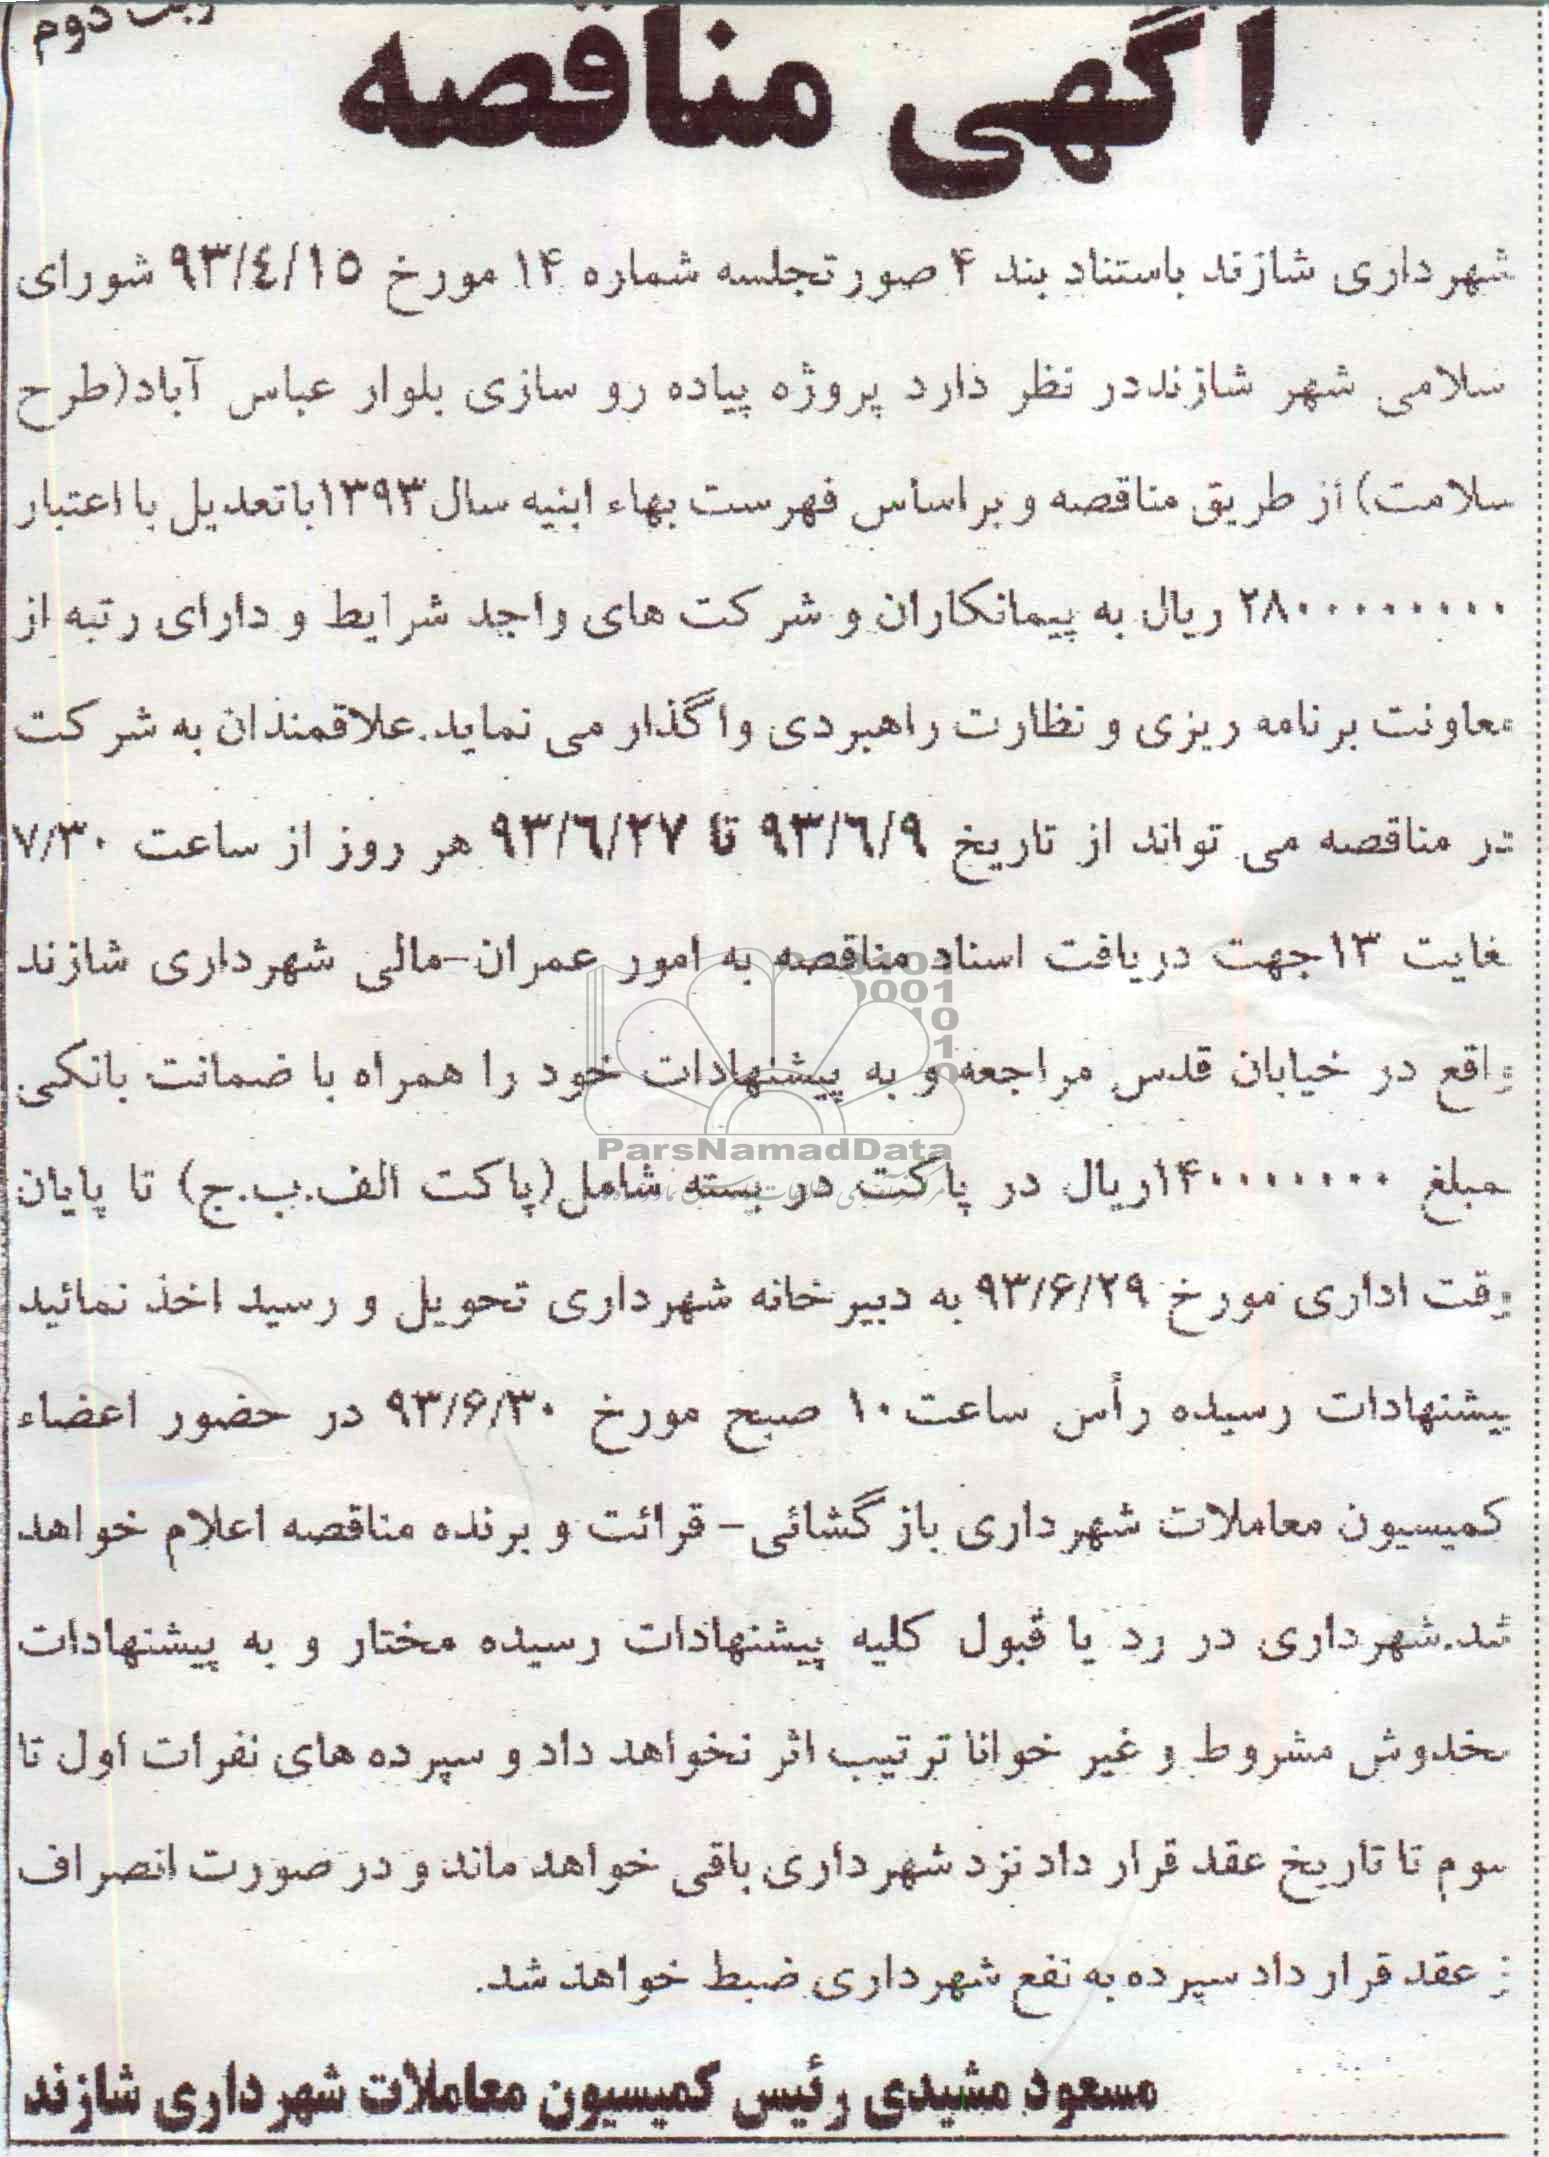 نوبت دوم
آگهی مناقصه
شهرداری شازند باستناد بند ۴ صورتجلسه شماره ۱۴ مورخ ۹۳/٤/۱۵ شورای
سلامی شهر شازنددر نظر دارد پروژه پیاده رو سازی بلوار عباس آباد(طرح
سلامت) از طریق مناقصه و براساس فهرست بهاء ابنیه سال۱۳۹۳باتعدیل با اعتبار
۲۸۰۰۰۰۰۰۰۰۰ ریال به پیمانکاران و شرکت های واجد شرایط و دارای رتبه از
معاونت برنامه ریزی و نظارت راهبردی واگذار می نماید.علاقمندان به شرکت
در مناقصه می تواند از تاریخ ۹۳/٦/۹ تا ۹۳/٦/۲۷ هر روز از ساعت ۷/۳۰
لغایت ۱۳جهت دریافت اسناد مناقصه به امور عمران-مالی شهرداری شازند
واقع در خیابان قدس مراجعه و به پیشنهادات خود را همراه با ضمانت بانکی
مبلغ ۱۴۰۰۰۰۰۰۰۰ریال در پاکت در بسته شامل(پاکت الف.ب.ج) تا پایان
وقت اداری مورخ ۹۳/۶/۲۹ به دبیرخانه شهرداری تحویل و رسید اخذ نمائید
پیشنهادات رسیده رأس ساعت۱۰ صبح مورخ ۹۳/۶/۳۰ در حضور اعضاء
کمیسیون معاملات شهرداری بازگشائی- قرائت و برنده مناقصه اعلام خواهد
شد.شهرداری در رد یا قبول کلیه پیشنهادات رسیده مختار و به پیشنهادات
مخدوش مشروط و غیر خوانا ترتیب اثر نخواهد داد و سپرده های نفرات اول تا
سوم تا تاریخ عقد قرار داد نزد شهرداری باقی خواهد ماند و در صورت انصراف
از عقد قرار داد سپرده به نفع شهرداری ضبط خواهد شد.
مسعود مشیدی رئیس کمیسیون معاملات شهرداری شازند
ParsNamadData